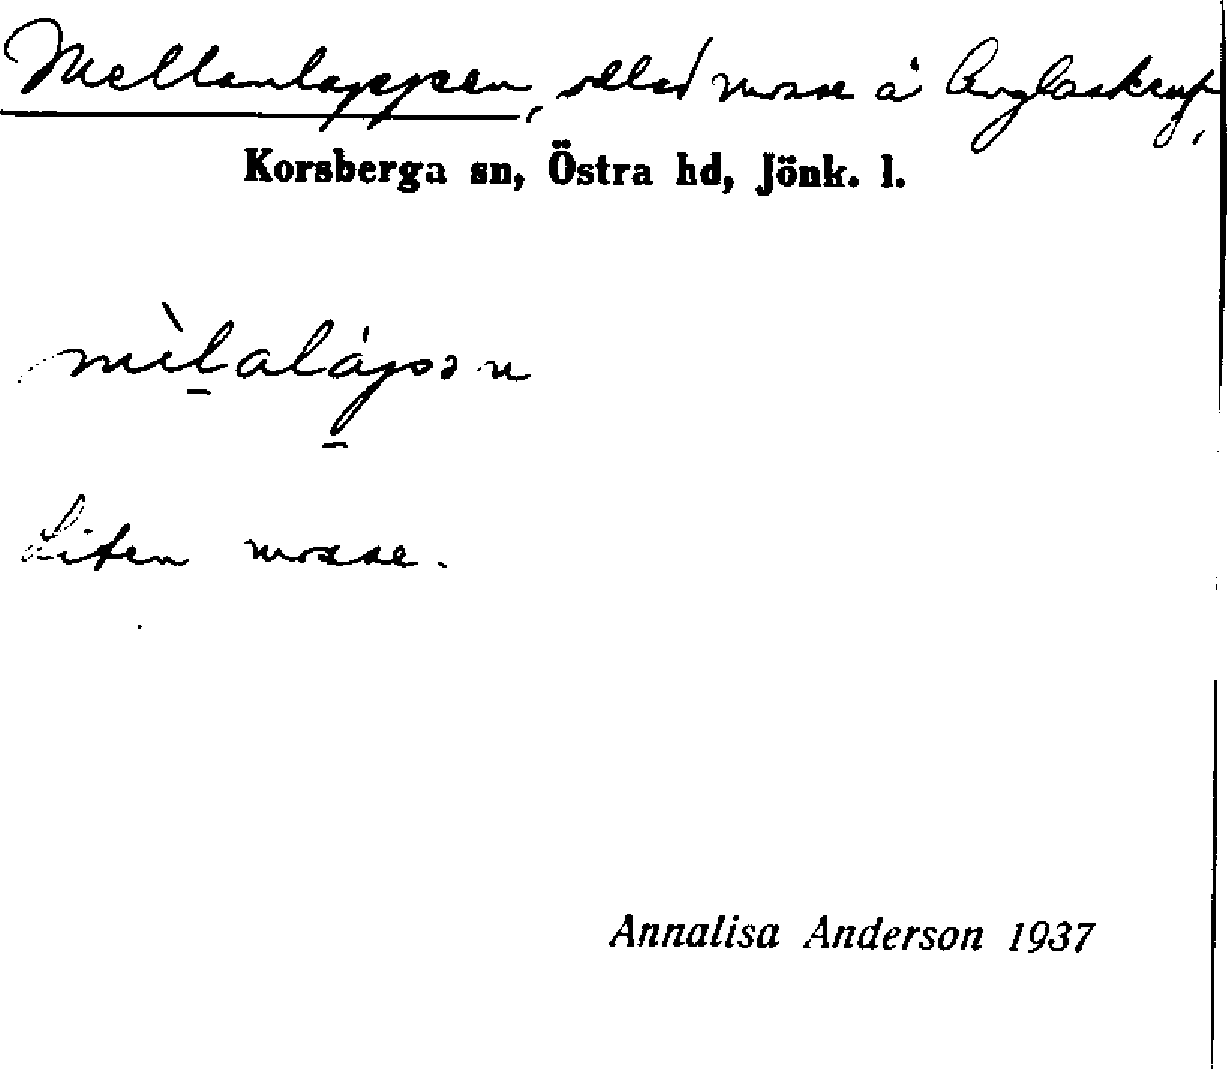 Mellanlappen, odlad mosse å Anglaskrup,
Korsberga sn, Östra hd, Jönk. l.
mìl̠alápp̠ən
Liten mosse.
Annalisa Anderson 1937